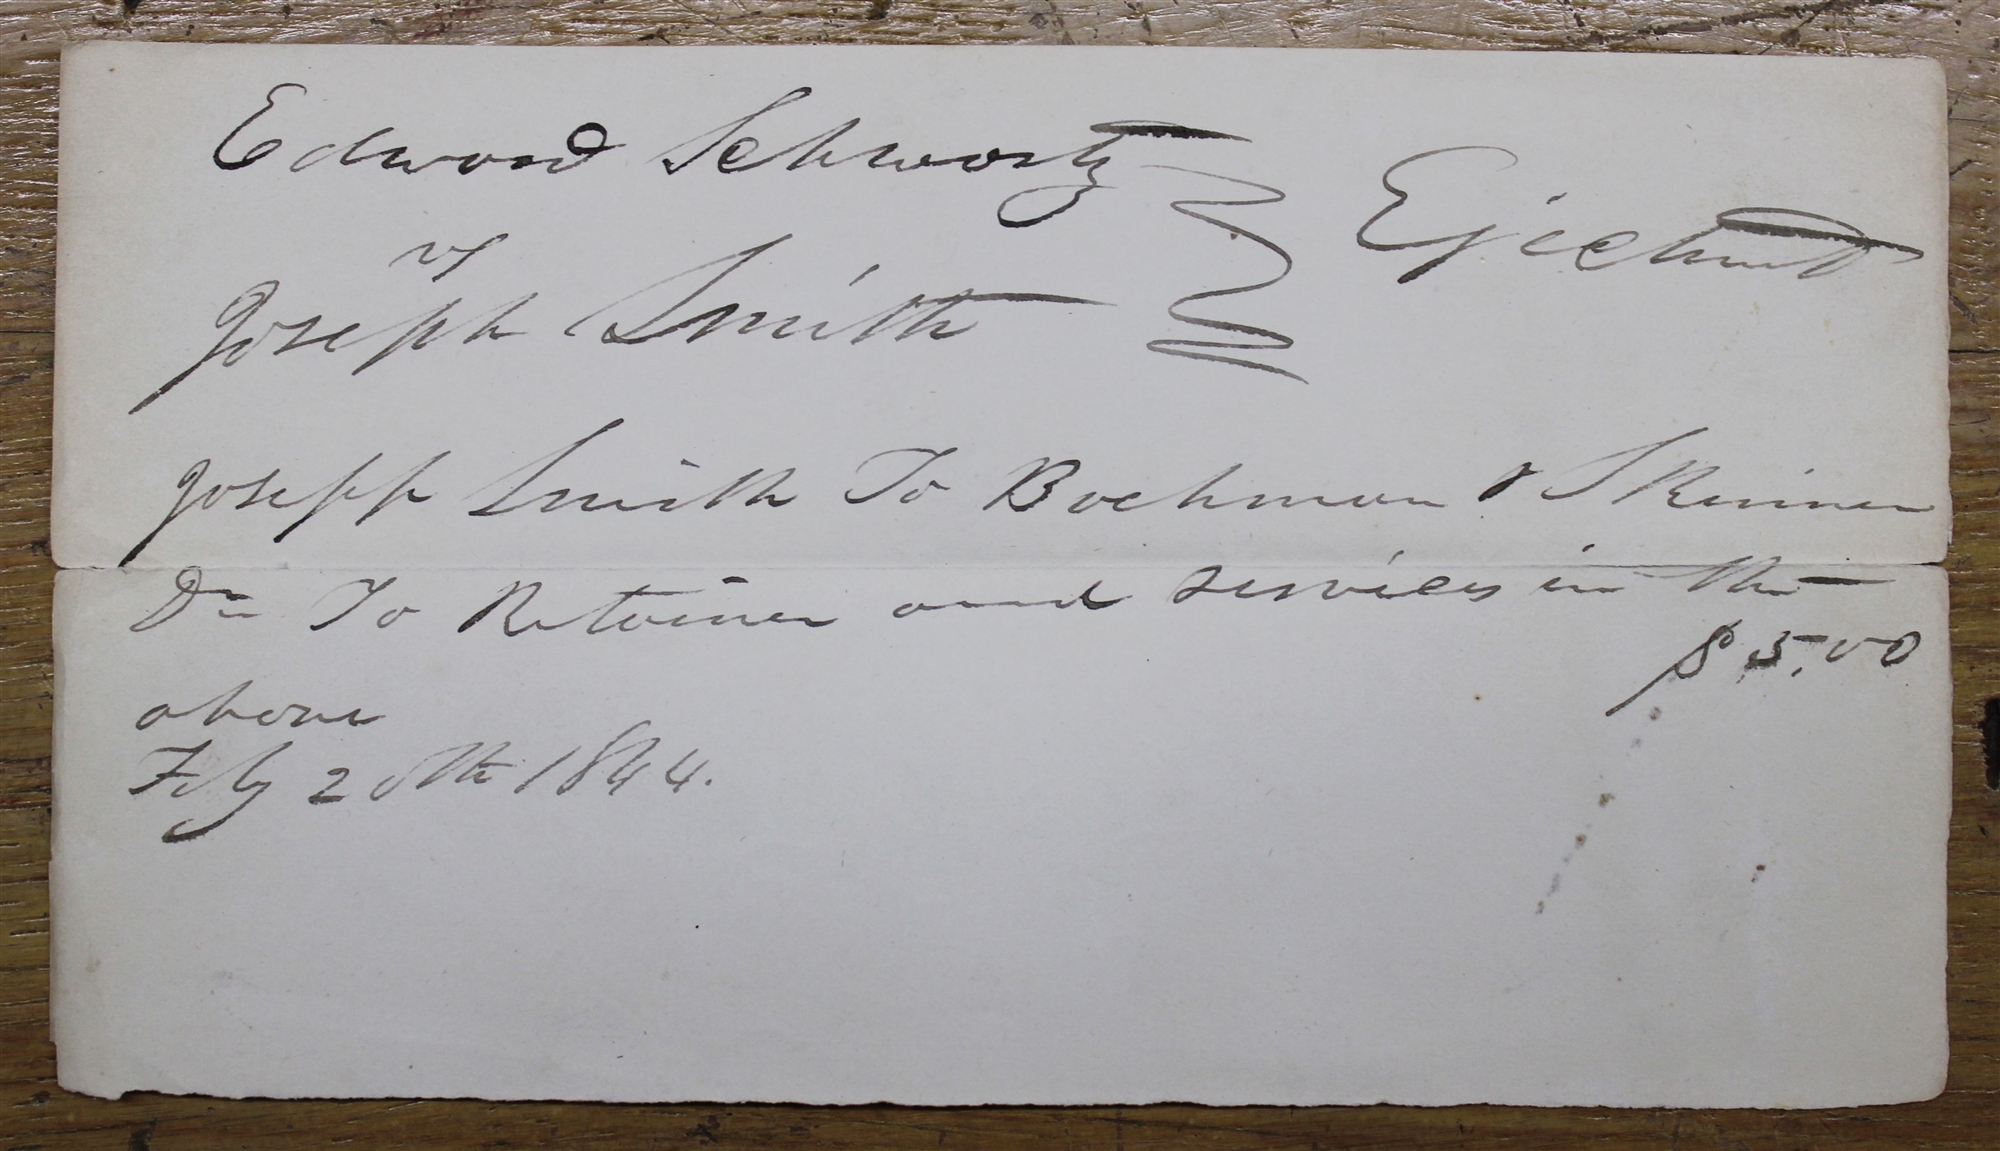 Edward Schwartz
vs
Ejectmt
Joseph Smith
Joseph Smith To Bachman & Skinner
Dr To Retainer and services in the
$5.00
above
Feby 20th 1844.